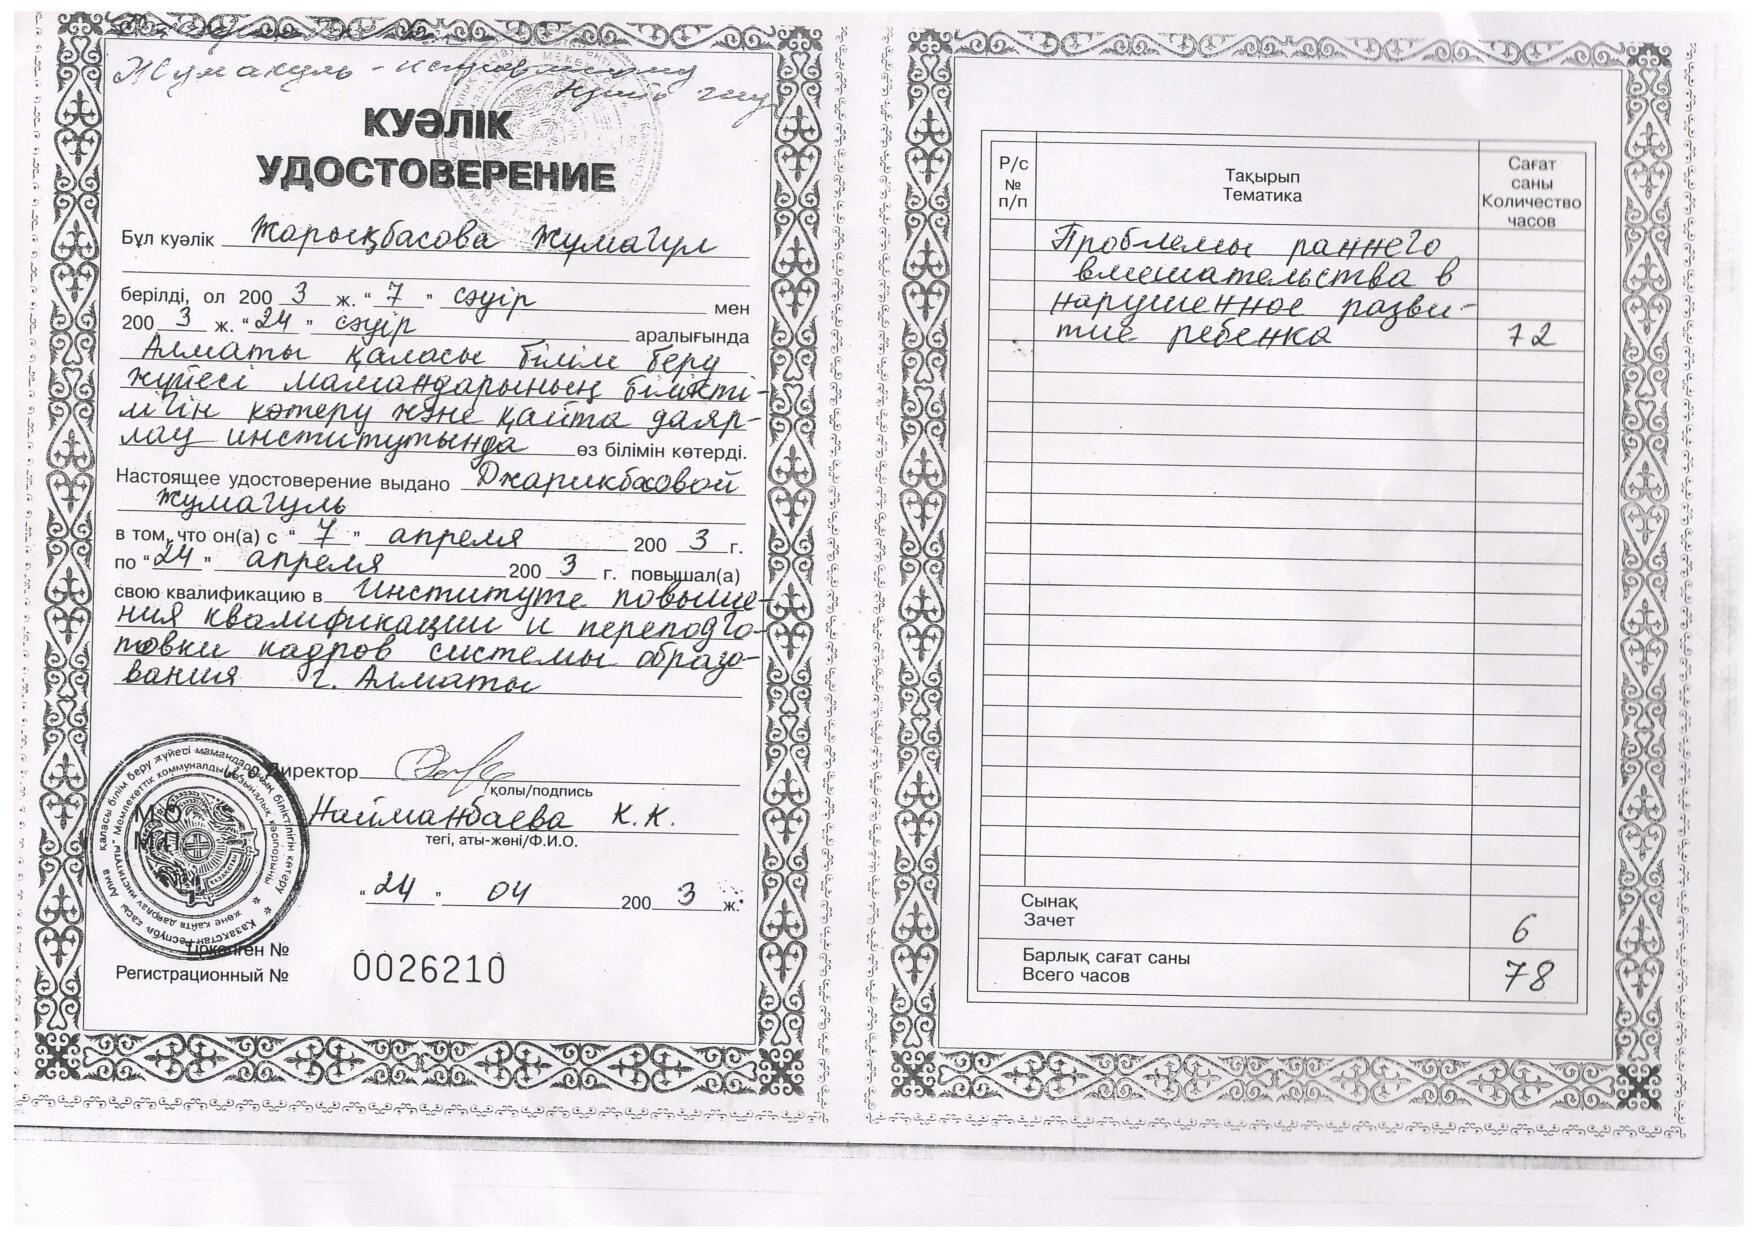 Жумакуль -
КУӘЛІК
УДОСТОВЕРЕНИЕ
Бұл куәлік Жарықбасова Жумагул
берілді, ол 200 3 ж. “ 7 ” сәуір мен
200 3 ж. “ 24 ” сәуір аралығында
Алматы қаласы білім беру
жүйесі мамандарының білікті-
лігін көтеру және қайта даяр-
лау институтында өз білімін көтерді.
Настоящее удостоверение выдано Джарикбасовой
Жумагуль
в том, что он(а) с “ 7 ” апреля 200 3 г.
по “ 24 ” апреля 200 3 г. повышал(а)
свою квалификацию в Институте повыше-
ния квалификации и переподго-
товки кадров системы образо-
вания г. Алматы
И.О. Директор
қолы/подпись
М.О.
М.П.
Найманбаева К.К.
тегі, аты-жөні/Ф.И.О.
“ 24 ” 04 200 3 ж.
Тіркелген №
Регистрационный № 0026210
Р/с № п/п
Тақырып
Тематика
Сағат
саны
Количество
часов
Проблемы раннего
вмешательства в
нарушенное разви-
тие ребенка 72
Сынақ
Зачет 6
Барлық сағат саны
Всего часов 78